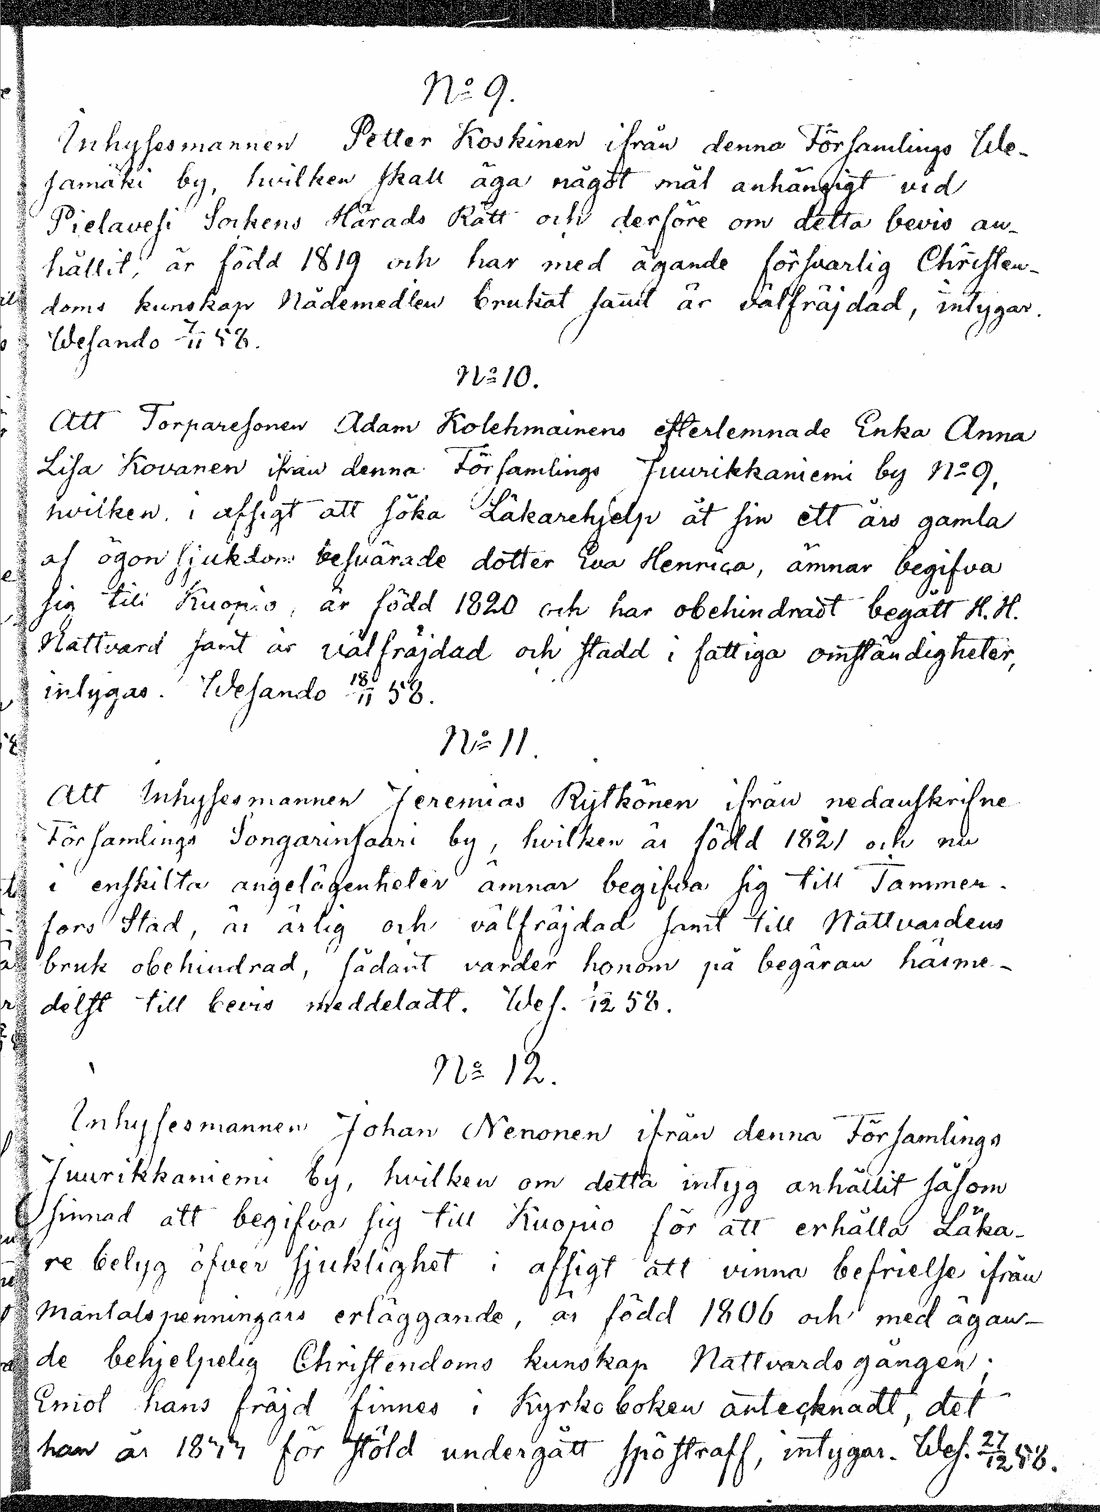 No 9.
Inhysesmannen Petter Koskinen ifrån denna Församlings We-
samäki by, hvilken skall äga något mål anhängigt vid
Pielavesi Sockens Härads Rätt och derföre om detta bevis an-
hållit, är född 1819 och har med ägande försvarlig Christen-
doms kunskap Nådemedlen brukat samt är välfräjdad, intygar.
Wesando 7/11 58.
No 10.
Att Torparesonen Adam Kolehmainens efterlemnade Enka Anna
Lisa Kovanen ifrån denna Församlings Juurikkaniemi by No 9,
hvilken i afsigt att söka Läkarehjelp åt sin ett års gamla
af ögon sjukdom besvärade dotter Eva Henrica, ämnar begifva
sig till Kuopio, är född 1820 och har obehindradt begått H. H.
Nattvard samt är välfräjdad och stadd i fattiga omständigheter,
intygas. Wesando 18/11 58.
No 11.
Att Inhysesmannen Jeremias Rytkönen ifrån nedanskrifne
Församlings Songarinsaari by, hvilken är född 1821 och nu
i enskilta angelägenheter ämnar begifva sig till Tammer-
fors Stad, är ärlig och välfräjdad samt till Nattvardens
bruk obehindrad, sådant varder honom på begäran härme-
delst till bevis meddeladt. Wes. 1/12 58.
No 12.
Inhysesmannen Johan Nenonen ifrån denna Församlings
Juurikkaniemi by, hvilken om detta intyg anhållit såsom
sinnad att begifva sig till Kuopio för att erhålla Läka-
re betyg öfver sjuklighet i afsigt att vinna befrielse ifrån
Mantalspenningars erläggande, är född 1806 och med ägan-
de behjelpelig Christendoms kunskap Nattvards gången;
Emot hans fräjd finnes i Kyrkoboken antecknadt, det
han år 1844 för stöld undergått spöstraff, intygar. Wes. 27/12 58.